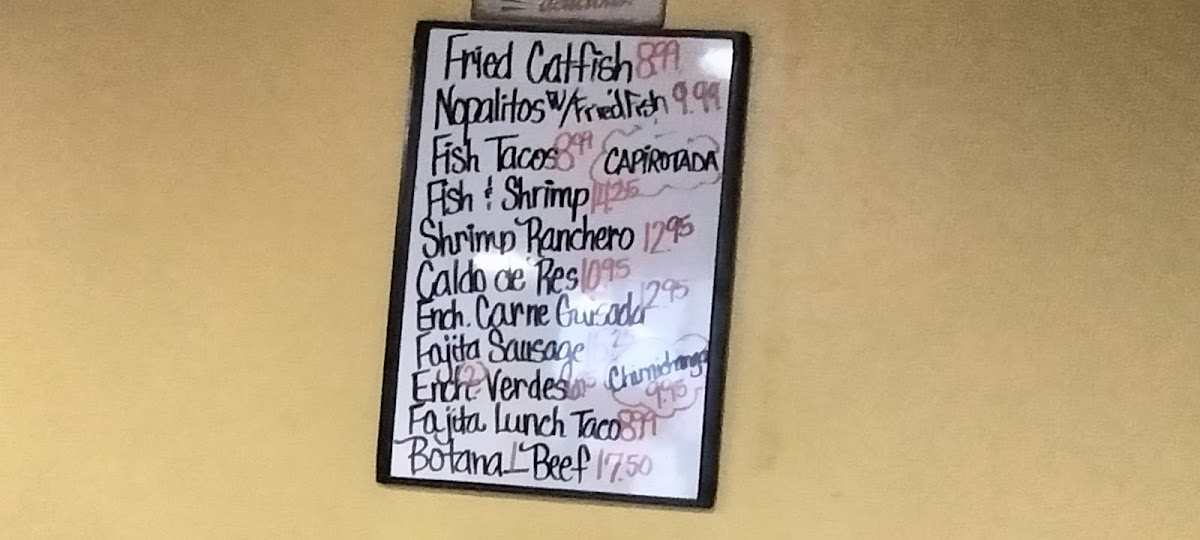 Fried Catfish 8.99
Nopalitos W/Fried Fish 9.99
Fish Tacos 8.99
CAPIROTADA
Fish & Shrimp 14.25
Shrimp Ranchero 12.95
Caldo de Res 10.95
Ench. Carne Guisada 12.95
Fajita Sausage
Chimichanga
9.95
Ench. (2) Verdes
Fajita Lunch Taco 8.99
Botana 1 Beef 17.50